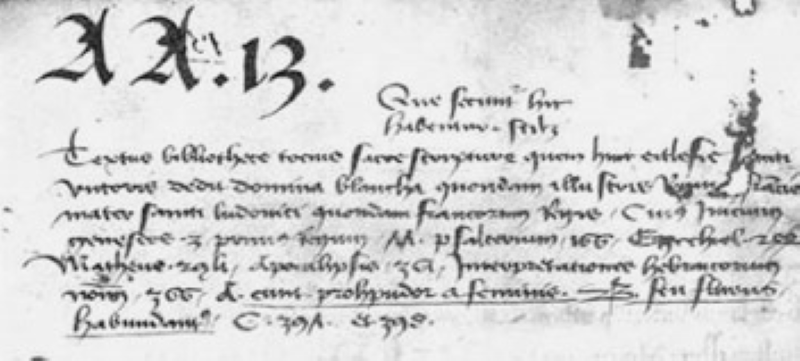 AA.13.
Que secuntur hic
habentur. scilz
Textus bibliothece tocius sacre scripture quem huic ecclesie sancti
victoris dedit domina blancha quondam illustris Regina francie
mater sancti ludovici quondam francorum Regis. Cuius Inicium
geneseos. 3 primus Regum. psalterium. 166. Ezechiel. 2
Matheus. Apocalipsis. Interpretationes hebraicorum
nominum. 366. A. cunt prohpudor a femine. B. seu fluens
habundans. C. et